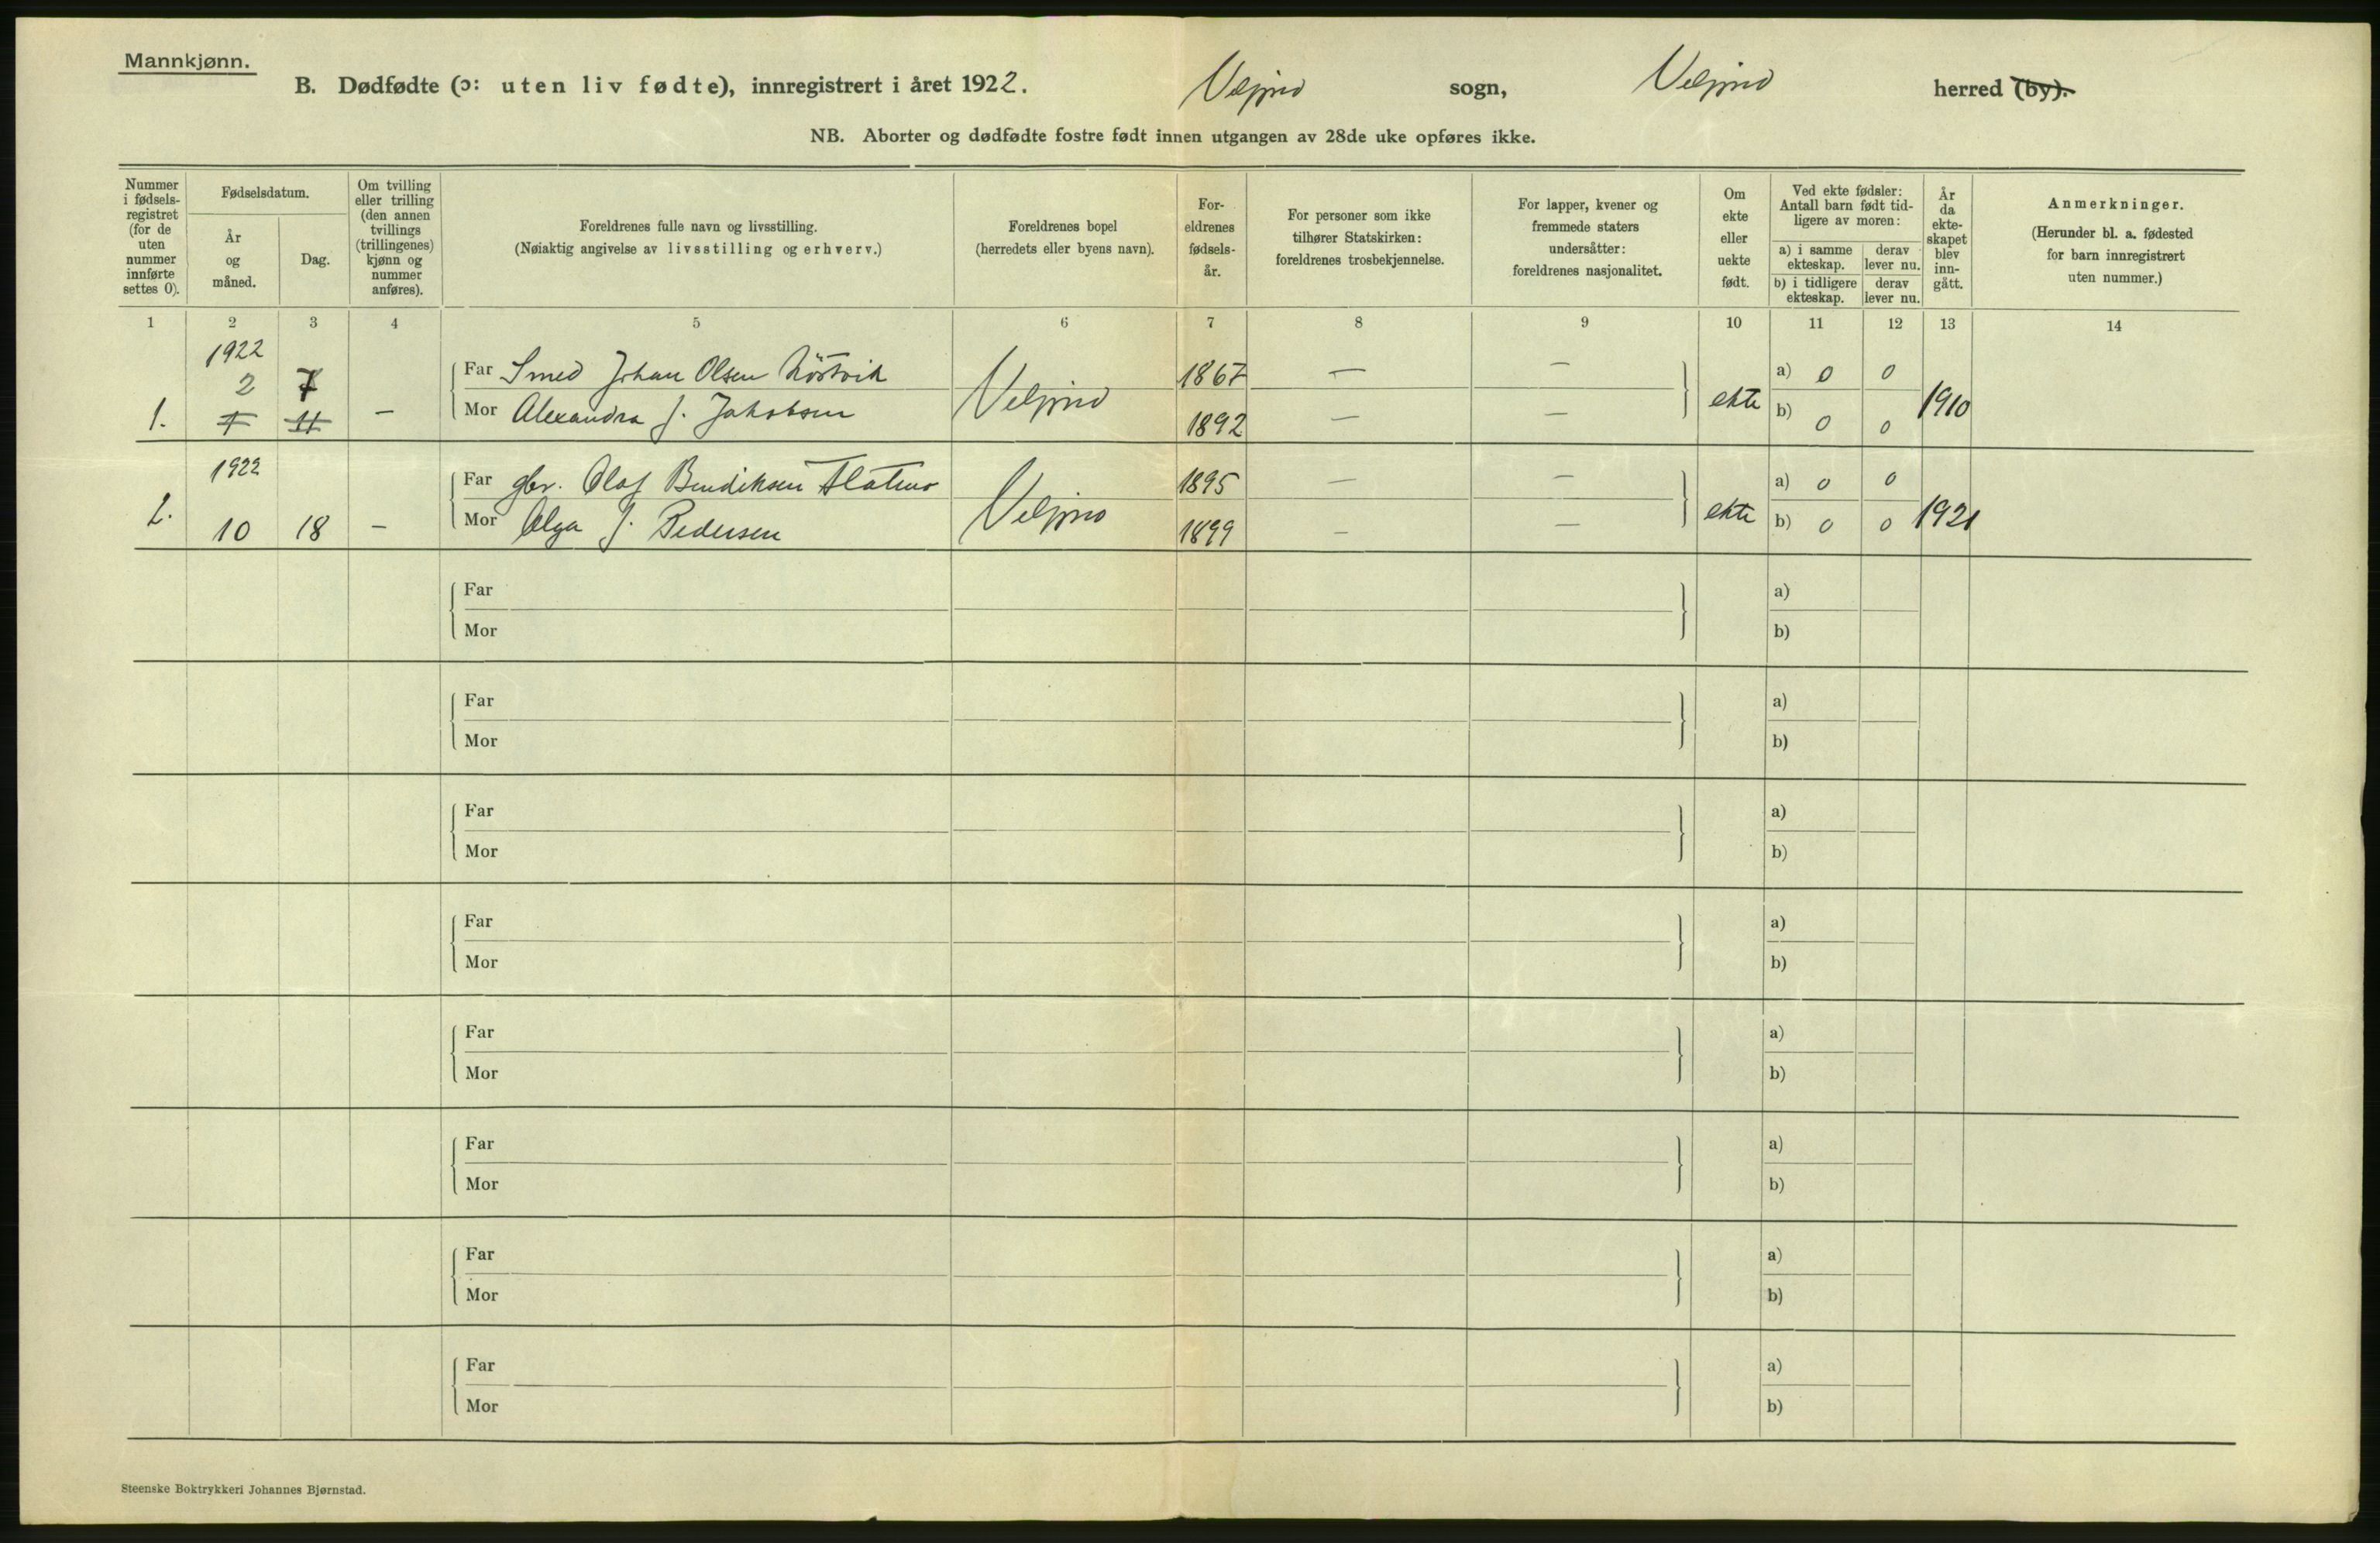 Mannkjønn.
B. Dødfødte (ɔ: uten liv fødte), innregistrert i året 1922. Velfjord sogn, Velfjord herred (by).
NB. Aborter og dødfødte fostre født innen utgangen av 28de uke opføres ikke.
Nummer i fødselsregistret (for de uten nummer innførte settes 0).
Fødselsdatum.
År og måned.
Dag.
Om tvilling eller trilling (den annen tvillings (trillingenes) kjønn og nummer anføres).
Foreldrenes fulle navn og livsstilling.
(Nøiaktig angivelse av livsstilling og erhverv.)
Foreldrenes bopel
(herredets eller byens navn).
Foreldrenes fødselsår.
For personer som ikke tilhører Statskirken: foreldrenes trosbekjennelse.
For lapper, kvener og fremmede staters undersåtter: foreldrenes nasjonalitet.
Om ekte eller uekte født.
Ved ekte fødsler: Antall barn født tidligere av moren:
a) i samme ekteskap.
derav lever nu.
b) i tidligere ekteskap.
derav lever nu.
År da ekteskapet blev inngått.
Anmerkninger.
(Herunder bl. a. fødested for barn innregistrert uten nummer.)
1 2 3 4 5 6 7 8 9 10 11 12 13 14
1922
2 7 Far Smed Johan Olsen 1867 — — a) 0 0
1. 7 11 — Mor Alexandra J. Jakobsen Velfjord 1892 — — ekte b) 0 0 1910
1922 Far gbr. Olaf Bendiksen 1895 — — a) 0 0
2. 10 18 — Mor Olga J. Pedersen Velfjord 1899 — — ekte b) 0 0 1921
Far a)
Mor b)
Far a)
Mor b)
Far a)
Mor b)
Far a)
Mor b)
Far a)
Mor b)
Far a)
Mor b)
Far a)
Mor b)
Far a)
Mor b)
Steenske Boktrykkeri Johannes Bjørnstad.